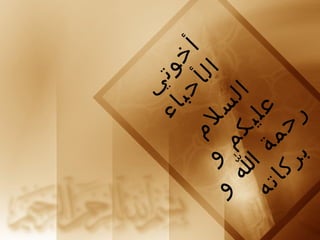 أخوتي
الأحباء
السلام
عليكم و
رحمة الله و
بركاته
بسم الله الرحمن الرحيم